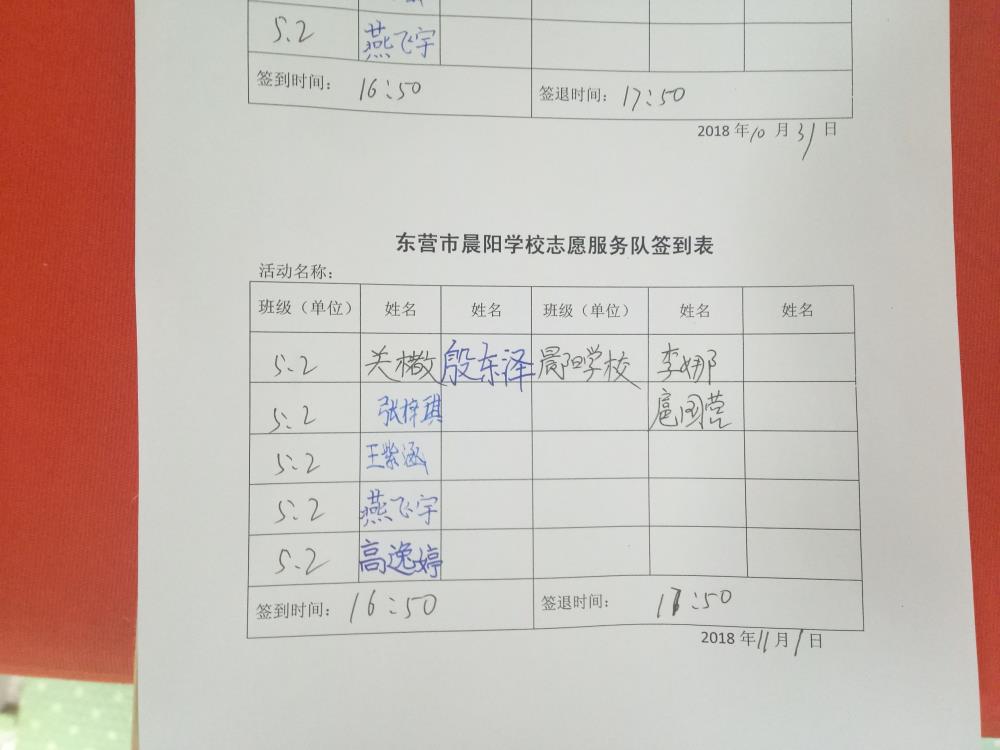 5.2 燕飞宇
签到时间: 16:50 签退时间: 17:50
2018 年 10 月 31 日
东营市晨阳学校志愿服务队签到表
活动名称:
班级（单位） 姓名 姓名 班级（单位） 姓名 姓名
5.2 关 殷东泽 晨阳学校 李娜
5.2 张梓琪 扈国营
5.2 王紫涵
5.2 燕飞宇
5.2 高逸婷
签到时间: 16:50 签退时间: 17:50
2018 年 11 月 1 日